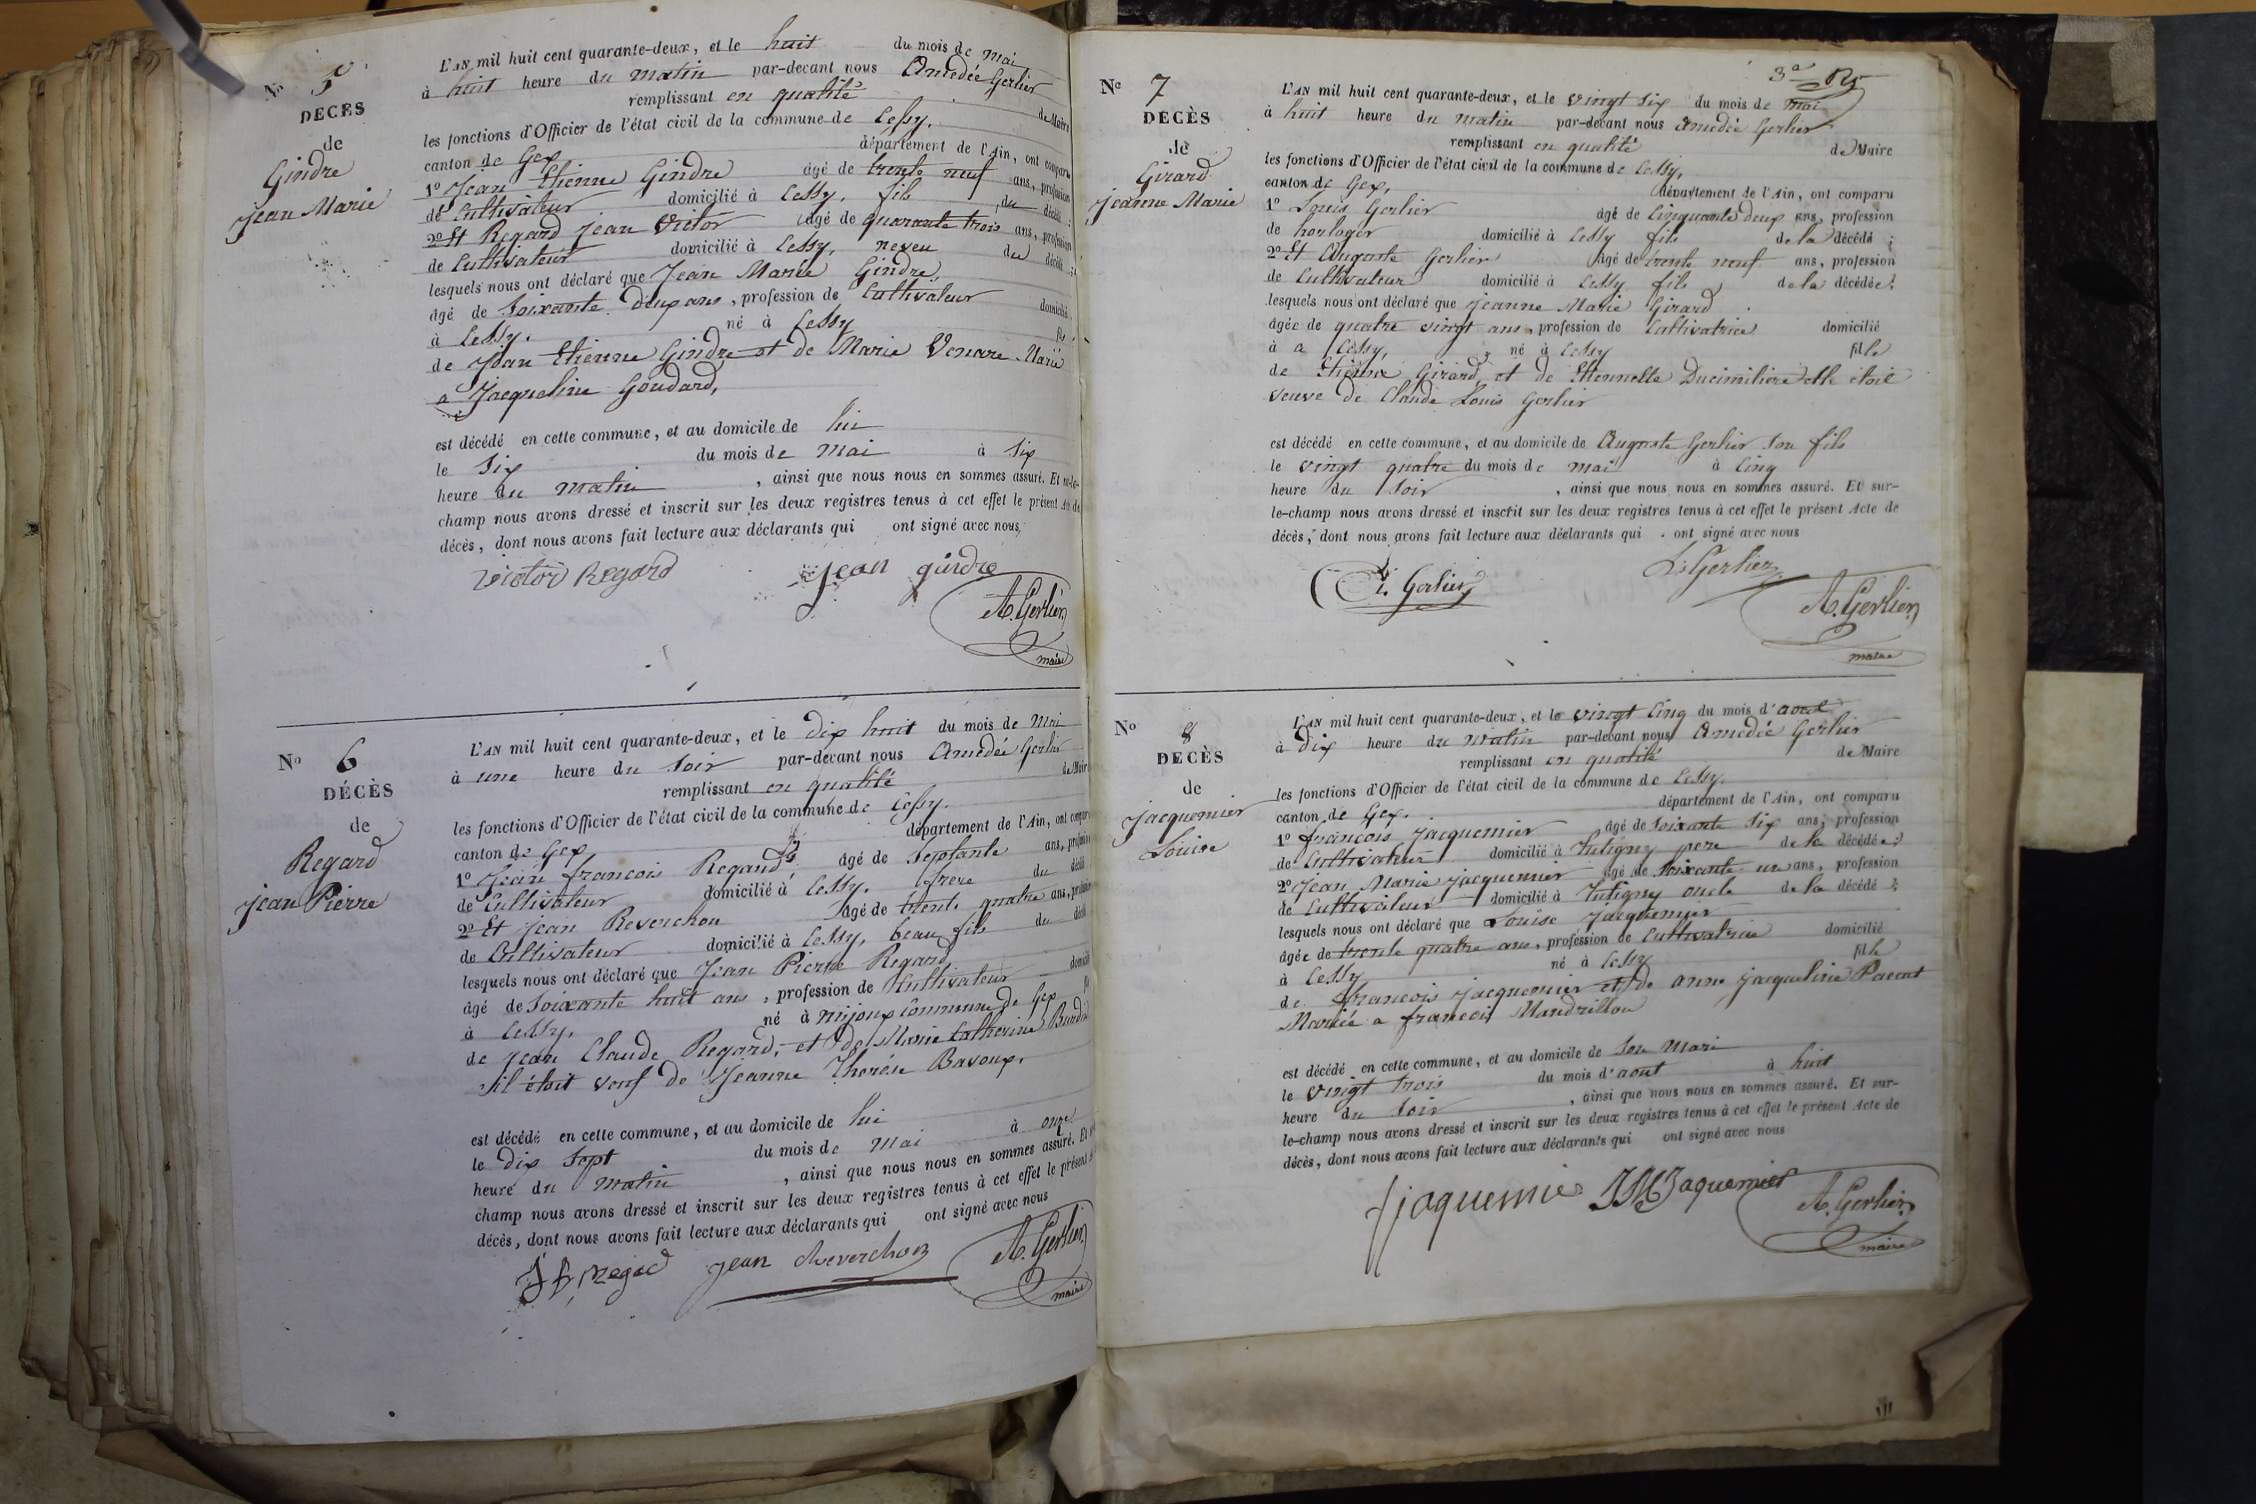 No 5
DÉCÈS
de
Gindre
Jean Marie
L'AN mil huit cent quarante-deux, et le huit du mois de Mai
à huit heure du matin par-devant nous Amedée Gerlier
remplissant en qualité de Maire
les fonctions d'Officier de l'état civil de la commune de Cessy.
canton de Gex département de l'Ain, ont comparu
1º Jean Etienne Gindre âgé de trente neuf ans, profession
de Cultivateur domicilié à Cessy. fils du décédé ;
2º Et Regard Jean Victor âgé de quarante trois ans, profession
de Cultivateur domicilié à Cessy, neveu du décédé ;
lesquels nous ont déclaré que Jean Marie Gindre,
âgé de Soixante deux ans, profession de Cultivateur domicilié
à Cessy. né à Cessy fils
de Jean Etienne Gindre et de Marie Venare Marié
a Jacqueline Goudard,
est décédé en cette commune, et au domicile de lui
le Six du mois de Mai à Six
heure du matin, ainsi que nous nous en sommes assuré. Et sur-le-
champ nous avons dressé et inscrit sur les deux registres tenus à cet effet le présent Acte de
décès, dont nous avons fait lecture aux déclarants qui ont signé avec nous,
Victor Regard Jean gindre
A. Gerlier
maire
No 6
DÉCÈS
de
Regard
Jean Pierre
L'AN mil huit cent quarante-deux, et le dix huit du mois de Mai
à une heure du Soir par-devant nous Amedée Gerlier
remplissant en qualité de Maire
les fonctions d'Officier de l'état civil de la commune de Cessy.
canton de Gex département de l'Ain, ont comparu
1º Jean francois Regard âgé de Septante ans, profession
de Cultivateur domicilié à Cessy. frere du décédé
2º Et Jean Reverchon âgé de trente quatre ans, profession
de Cultivateur domicilié à Cessy, beau fils du décédé
lesquels nous ont déclaré que Jean Pierre Regard
âgé de Soixante huit ans, profession de Cultivateur domicilié
à Cessy. né à mijoux commune de Gex fils
de Jean Claude Regard, et de Marie Catherine
il était veuf de Jeanne Therése Bavoux.
est décédé en cette commune, et au domicile de lui
le dix Sept du mois de Mai à onze
heure du matin, ainsi que nous nous en sommes assuré. Et
champ nous avons dressé et inscrit sur les deux registres tenus à cet effet le présent
décès, dont nous avons fait lecture aux déclarants qui ont signé avec nous
Jean Reverchon
A. Gerlier
maire
3e
No 7
DÉCÈS
de
Girard
Jeanne Marie
L'AN mil huit cent quarante-deux, et le vingt Six du mois de mai
à huit heure du matin par-devant nous Amedée Gerlier
remplissant en qualité de Maire
les fonctions d'Officier de l'état civil de la commune de Cessy,
canton de Gex, département de l'Ain, ont comparu
1º Louis Gerlier âgé de Cinquante deux ans, profession
de horloger domicilié à Cessy fils de la décédé ;
2º Et Auguste Gerlier âgé de trente neuf ans, profession
de Cultivateur domicilié à Cessy fils de la décédée ;
lesquels nous ont déclaré que Jeanne Marie Girard
âgée de quatre vingt ans, profession de Cultivatrice domicilié
à a Cessy, né à Cessy fille
de Etienne Girard, et de Etiennette Ducimitiere elle étoit
veuve de Claude Louis Gerlier
est décédé en cette commune, et au domicile de Auguste Gerlier Son fils
le vingt quatre du mois de mai à Cinq
heure du Soir, ainsi que nous nous en sommes assuré. Et sur-
le-champ nous avons dressé et inscrit sur les deux registres tenus à cet effet le présent Acte de
décès, dont nous avons fait lecture aux déclarants qui ont signé avec nous
Gerlier Ls Gerlier
A. Gerlier
maire
No 8
DÉCÈS
de
Jacquemier
Louise
L'AN mil huit cent quarante-deux, et le vingt Cinq du mois d'aout
à Dix heure du matin par-devant nous Amedée Gerlier
remplissant en qualité de Maire
les fonctions d'Officier de l'état civil de la commune de Cessy.
canton de Gex. département de l'Ain, ont comparu
1º francois Jacquemier âgé de Soixante Six ans, profession
de Cultivateur domicilié à Tutigny pere de la décédée ;
2º Jean Marie Jacquemier âgé de Soixante un ans, profession
de Cultivateur domicilié à Tutigny oncle de la décédé ;
lesquels nous ont déclaré que Louise Jacquemier
âgée de trente quatre ans, profession de Cultivatrice domicilié
à Cessy né à Cessy fille
de francois Jacquemier et de anne Jacqueline Paccot
Mariée a francois Mandrillon
est décédé en cette commune, et au domicile de Son Mari
le vingt trois du mois d'aout à huit
heure du Soir, ainsi que nous nous en sommes assuré. Et sur-
le-champ nous avons dressé et inscrit sur les deux registres tenus à cet effet le présent Acte de
décès, dont nous avons fait lecture aux déclarants qui ont signé avec nous
fjaquemier JMJaquemier
A. Gerlier
maire